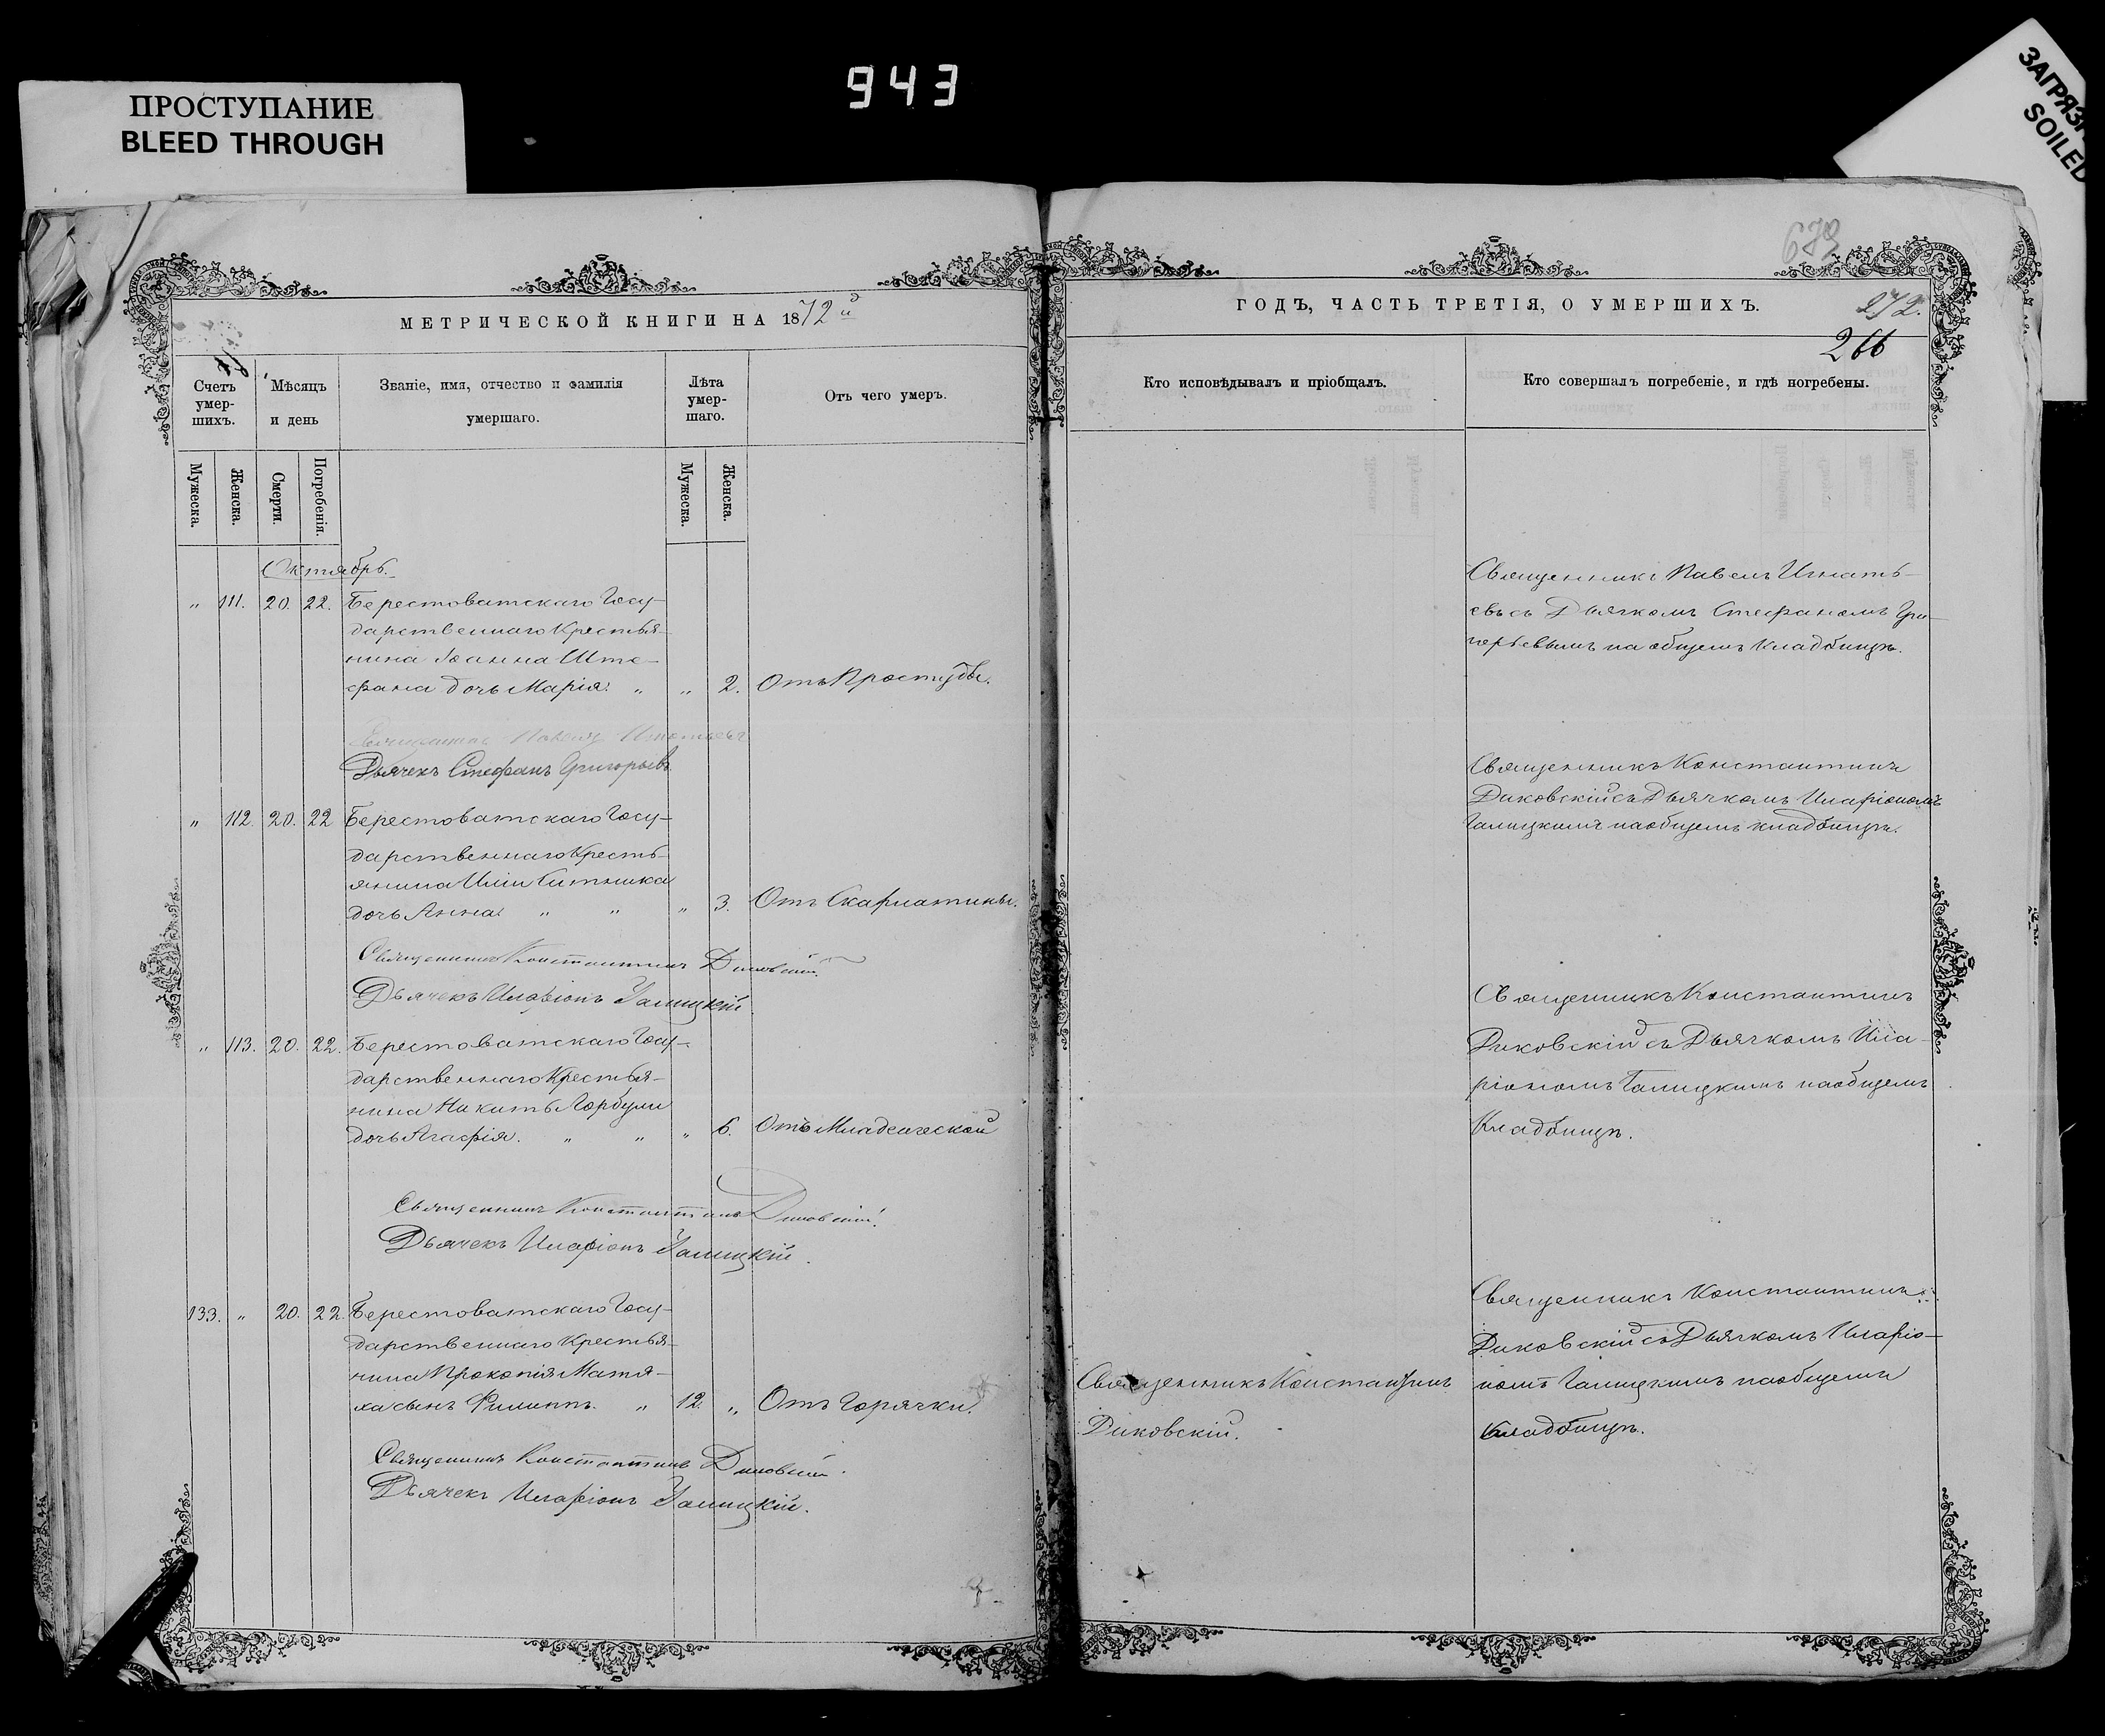 943
ПРОСТУПАНИЕ
BLEED THROUGH
ЗАГРЯЗН
SOILED
МЕТРИЧЕСКОЙ КНИГИ НА 1872й
Счетъ умер-шихъ.
Мѣсяцъ и день
Званіе, имя, отчество и фамилія умершаго.
Лѣта умер-шаго.
Отъ чего умеръ.
Мужеска.
Женска.
Смерти.
Погребенія.
Мужеска.
Женска.
Октябрь.
" 111. 20. 22. Берестоватскаго Госу-
дарственнаго Крестья-
нина Іоанна Ште-
фана дочь Марія. " " 2. Отъ Простуды.
Священникъ Павелъ Игнатьевъ
Дьячекъ Стефанъ Григорьевъ
" 112. 20. 22 Берестоватскаго Госу-
дарственнаго Кресть-
янина Иліи Ситника
дочь Анна " " " 3. Отъ Скарлатины.
Священникъ Константинъ Диковскій
Дьячекъ Иларіонъ Галицкій.
" 113. 20. 22. Берестоватскаго Госу-
дарственнаго Крестья-
нина Никиты Горбули
дочь Агафія. " " " 6. Отъ Младенческой
Священникъ Константинъ Диковскій.
Дьячекъ Иларіонъ Галицкій.
133. " 20. 22. Берестоватскаго Госу-
дарственнаго Крестья-
нина Прокопія Матя-
ха сынъ Филиппъ. " 12. " Отъ Горячки.
Священникъ Константинъ Диковскій.
Дьячекъ Иларіонъ Галицкій.
ГОДЪ, ЧАСТЬ ТРЕТІЯ, О УМЕРШИХЪ.
272.
266
Кто исповѣдывалъ и пріобщалъ.
Кто совершалъ погребеніе, и гдѣ погребены.
Священникъ Павелъ Игнать-
евъ съ Дьячкомъ Стефаномъ Гри-
горьевымъ на общемъ кладбищѣ.
Священникъ Константинъ
Диковскій съ Дьячкомъ Иларіономъ
Галицкимъ на общемъ кладбищѣ.
Священникъ Константинъ
Диковскій съ Дьячкомъ Ила-
ріономъ Галицкимъ на общемъ
Кладбищѣ.
Священникъ Константинъ
Диковскій съ Дьячкомъ Иларіо-
Священникъ Константинъ номъ Галицкимъ на общемъ
Диковскій. Кладбищѣ.